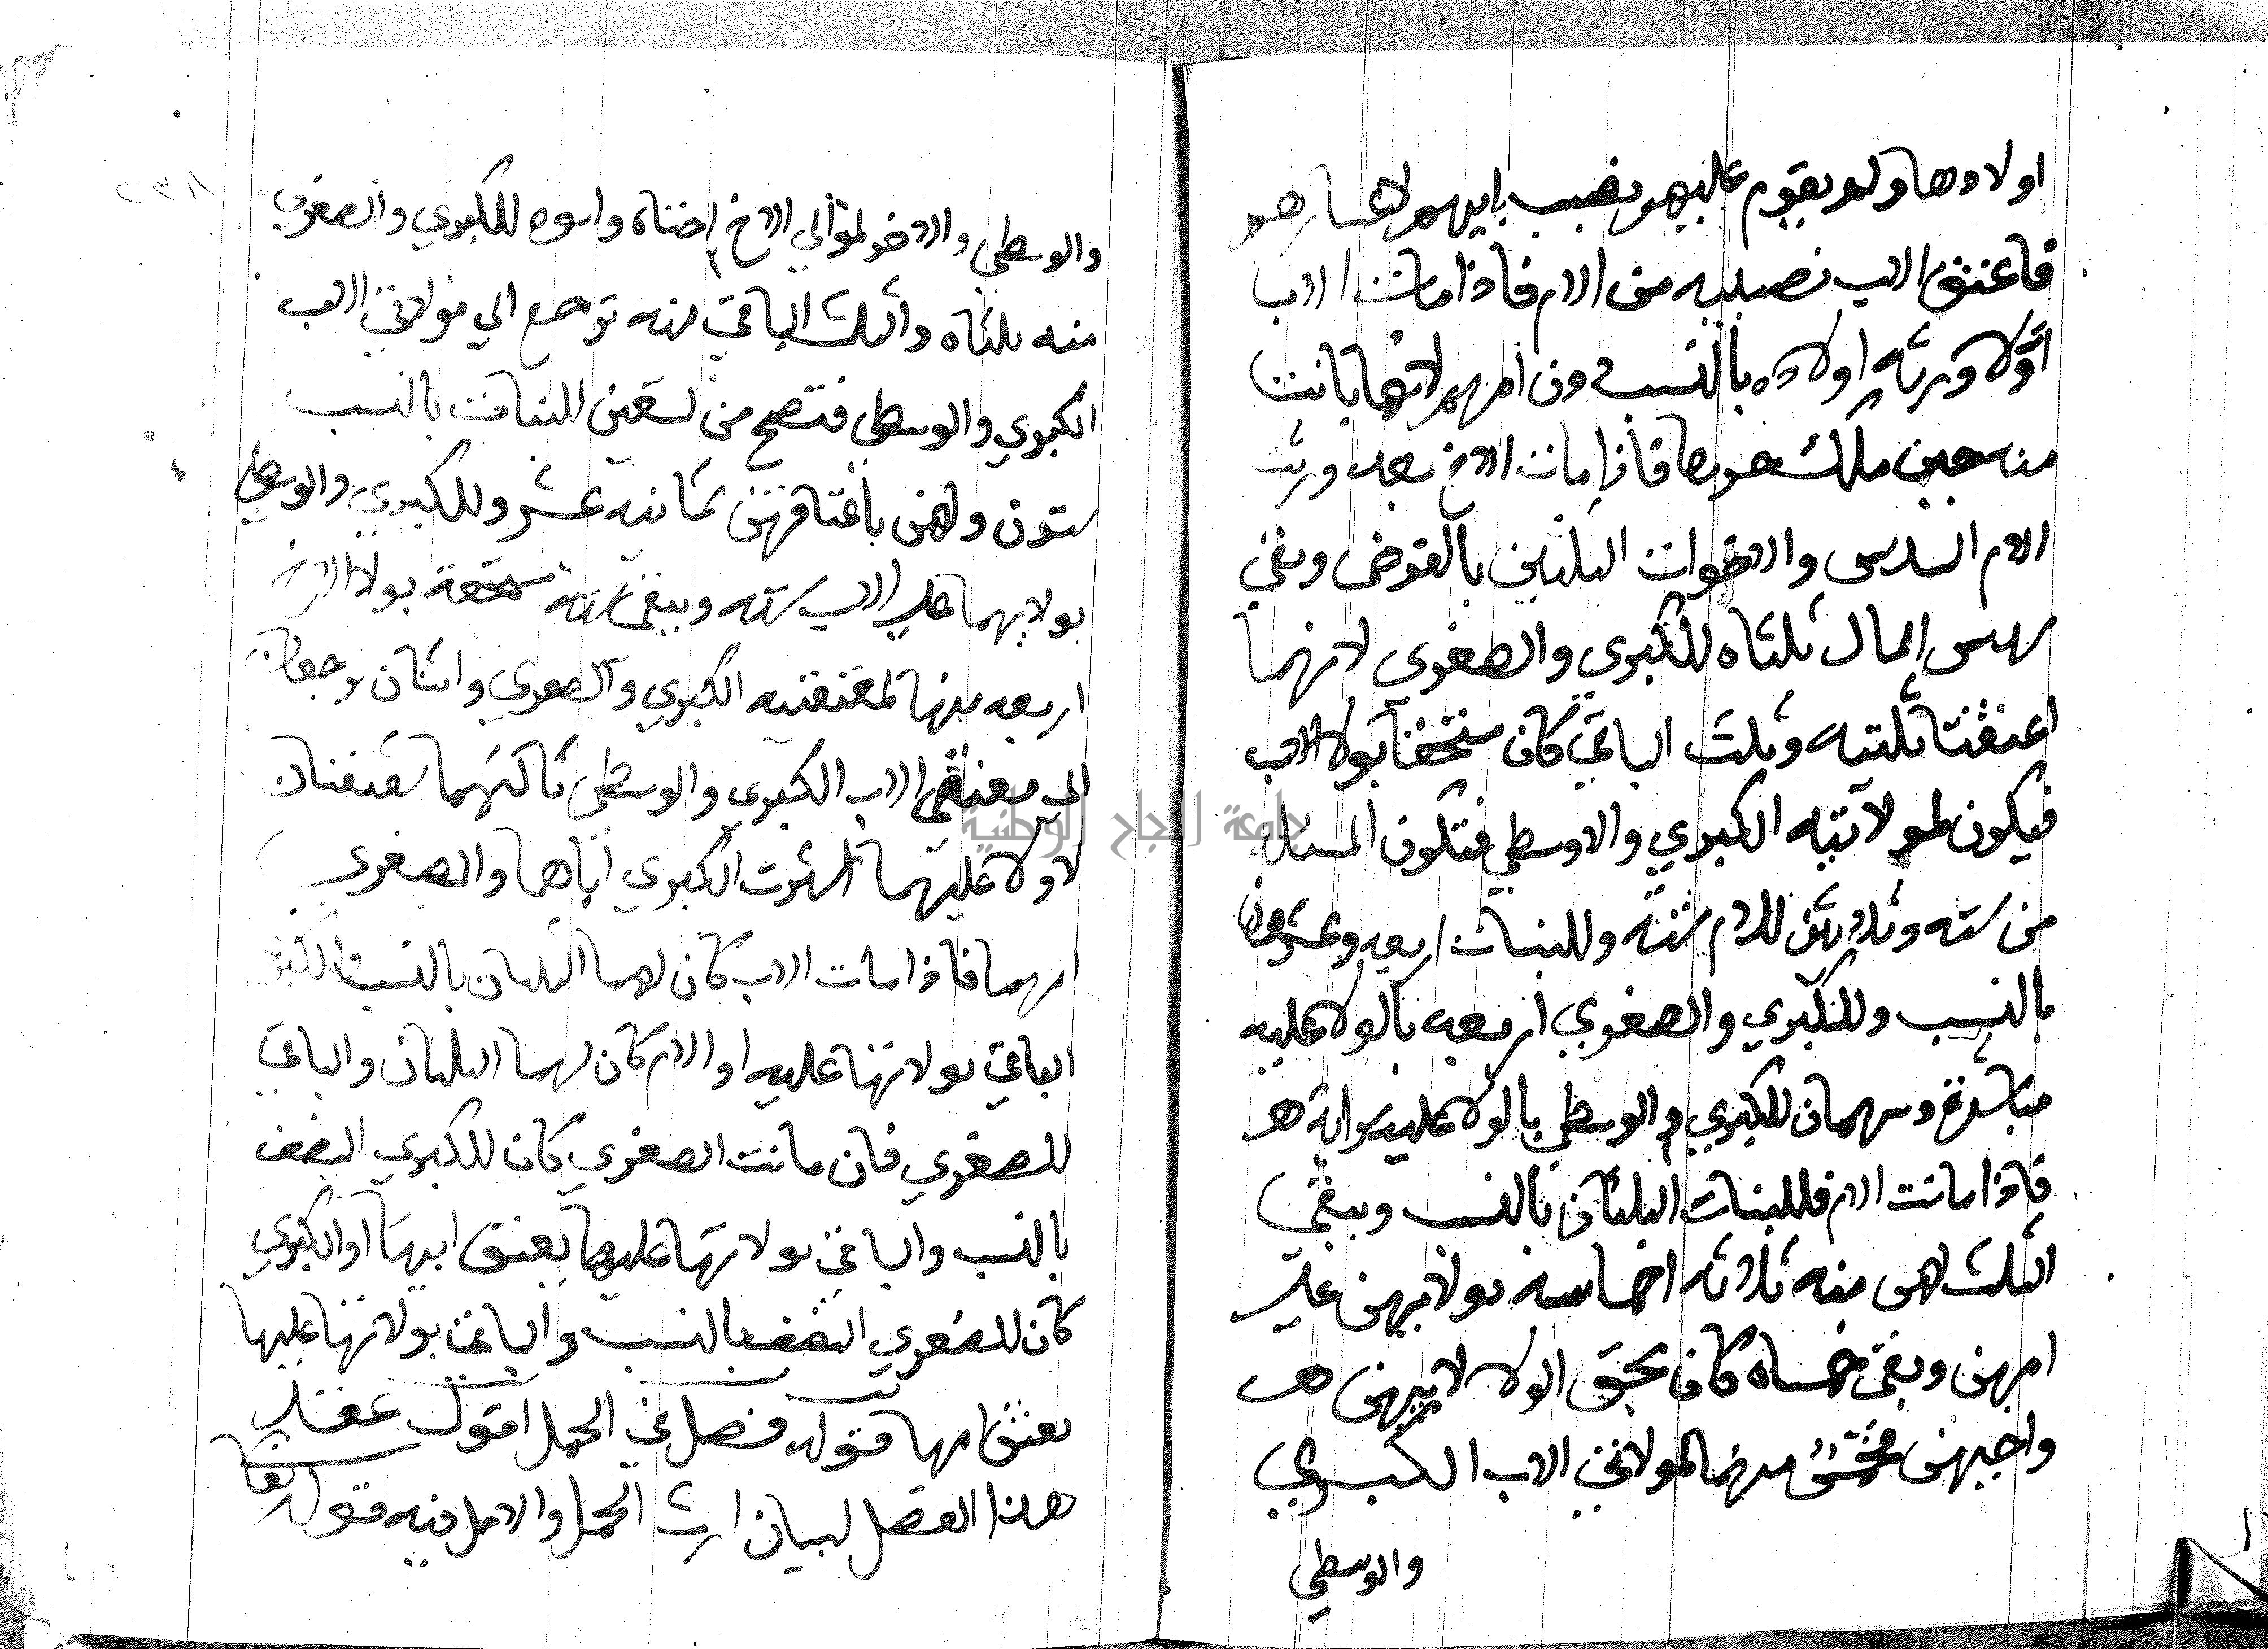 اولادها ولم يقوم عليهم نصيب ابيهم لاعساره
فاعتق الاب نصيبيه من الام فاذا مات الاب
اولا ورثه اولاده بالنسب دون امهم لانها بانت
منه حين ملك جزها فاذا مات الاخ بعد ورثت
الام السدس والاخوات الثلثين بالفرض وبقي
سدس المال ثلثاه للكبري والصغري لانهما
اعتقتا ثلثيه وثلث الباقي كان مستحقا بولا الاب
فيكون لمولاتيه الكبري والوسطي فتكون المسئله
من سته وثلاثين للام سته وللبنات اربعه وعشرون
بالنسب وللكبري والصغري اربعه بالولا عليه
مباشرة وسهمان للكبري والوسطي بالولا عليه سراية
فاذا ماتت الام فللبنات الثلثان بالنسب ويبقي
الثلث لهن منه ثلاثه اخماسه بولايهن علي
امهن وبقي خمساه كانا بحق الولا لابيهن
واخيهن فخمس منهما لمولاتي الاب الكبري
والوسطي
والوسطي والاخر لموالي الاخ اختاه وامه للكبري والصغري
منه ثلثاه والثلث الباقي منه ترجع الي مولاتي الاب
الكبري والوسطي فتصح من تسعين للبنات بالنسب
ستون ولهن باعتاقهن ثمانيه عشر وللكبري والوسطي
بولايهما علي الاب سته ويبقي سته بولا الاخ
اربعه منها لمعتقتيه الكبري والصغري واثنان يرجعان
الي معتقتي الاب الكبري والوسطي ثالثهما معتقتان
لا ولا عليهما اشترت الكبري اباها والصغري
امهما فاذا مات الاب كان لهما الثلثان بالنسب وللكبري
الباقي بولايتها عليه او الام كان لهما الثلثان والباقي
للصغري فان ماتت الصغري كان للكبري النصف
بالنسب والباقي بولايتها عليها بعتق ابيها او الكبري
كان للصغري النصف بالنسب والباقي بولايتها عليها
بعتق امها قوله فصل في الحمل اقول عقد
هذا الفصل لبيان ارث الحمل والاصل فيه قوله